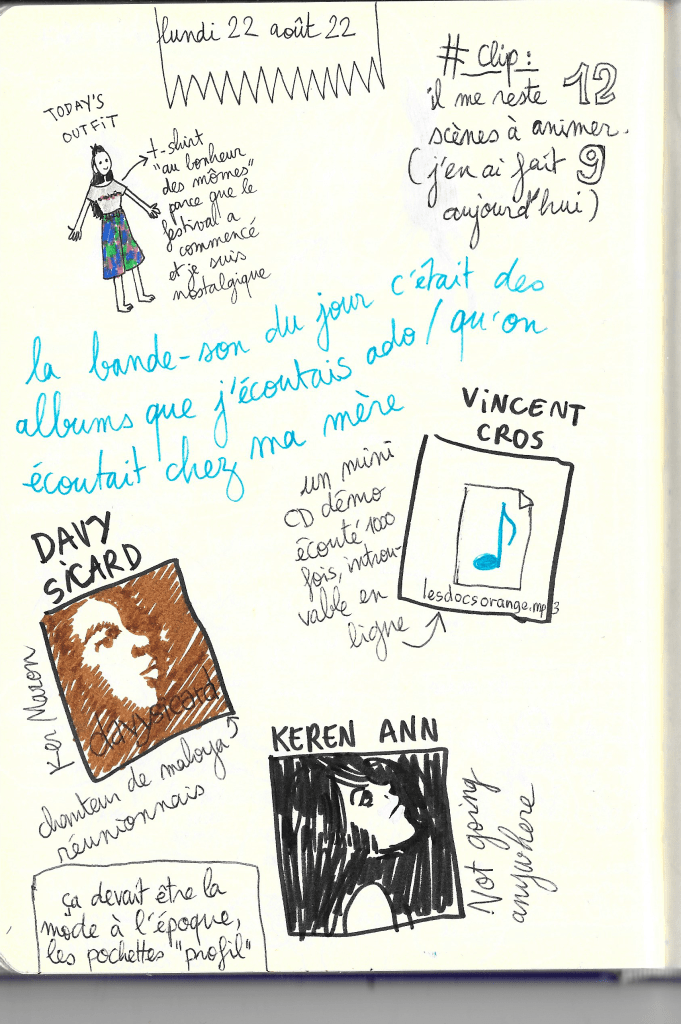 lundi 22 août 22
# Clip :
il me reste 12
scènes à animer.
(j'en ai fait 9
aujourd'hui)
TODAY'S
OUTFIT
t-shirt
"au bonheur
des mômes"
parce que le
festival a
commencé
et je suis
nostalgique
la bande-son du jour c'était des
albums que j'écoutais ado / qu'on
écoutait chez ma mère
VINCENT
CROS
un mini
CD démo
écouté 1000
fois, introu-
vable en
ligne
lesdocsorange.mp3
DAVY
SICARD
Ker Maron
davysicard
chanteur de maloya
réunionnais
KEREN ANN
Not going
anywhere
ça devait être la
mode à l'époque,
les pochettes "profil"